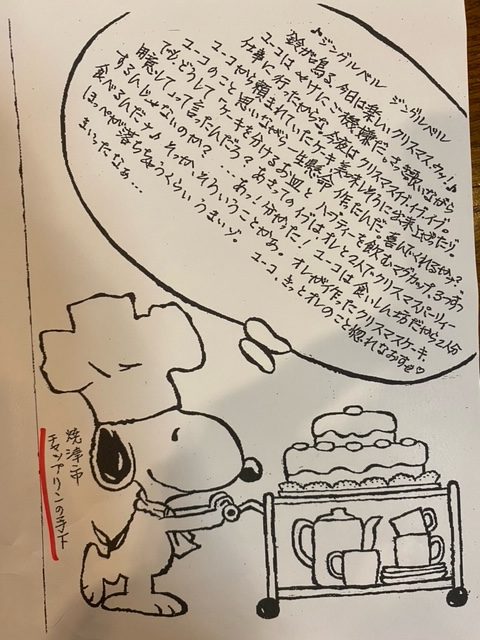 ♪ジングルベル ジングルベル
鈴が鳴る 今日は楽しいクリスマス
ユーコはやけにご機嫌だ。 歌いながら
仕事に行ったからな。今夜はクリスマスイブイブ。
ユーコから頼まれていたケーキ美味しそうに出来上がったゾ。
ユーコのこと想いながら一生懸命作ったんだ。喜んでくれるかナ?
でも、どうしてケーキを分けるお皿と、ハーブティーを飲むマグカップ、3つずつ
用意しろって言ったんだろう?あさってのイブはオレと2人でクリスマスパーリィー
するんじゃないのか? …あっ!分かった!ユーコは食いしん坊だから2人分
食べるんだナ♪そっか、そういうことかぁ。オレが作ったクリスマスケーキ、
ほっぺが落ちちゃうくらいうまいゾ。ユーコ、きっとオレのこと惚れなおすぜ♡
まいったなぁ…
焼津市
チャップリンの手下